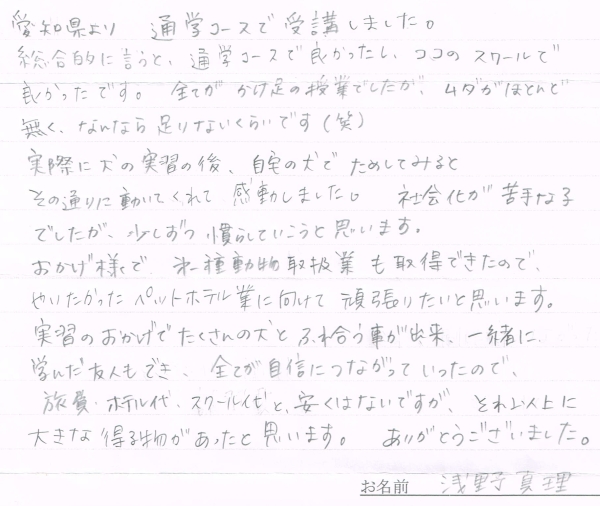 愛知県より　通学コースで受講しました。
総合的に言うと、通学コースで良かったし、ココのスクールで
良かったです。全てがかけ足の授業でしたが、ムダがほとんど
無く、なんなら足りないくらいです(笑)
実際に犬の実習の後、自宅の犬でためしてみると
その通りに動いてくれて感動しました。社会化が苦手な子
でしたが、少しずつ慣らしていこうと思います。
おかげ様で第一種動物取扱業も取得できたので、
やりたかったペットホテル業に向けて頑張りたいと思います。
実習のおかげでたくさんの犬とふれ合う事が出来、一緒に
学んだ友人もでき、全てが自信につながっていったので、
旅費・ホテル代・スクール代と、安くはないですが、それ以上に
大きな得る物があったと思います。ありがとうございました。
お名前　浅野真理